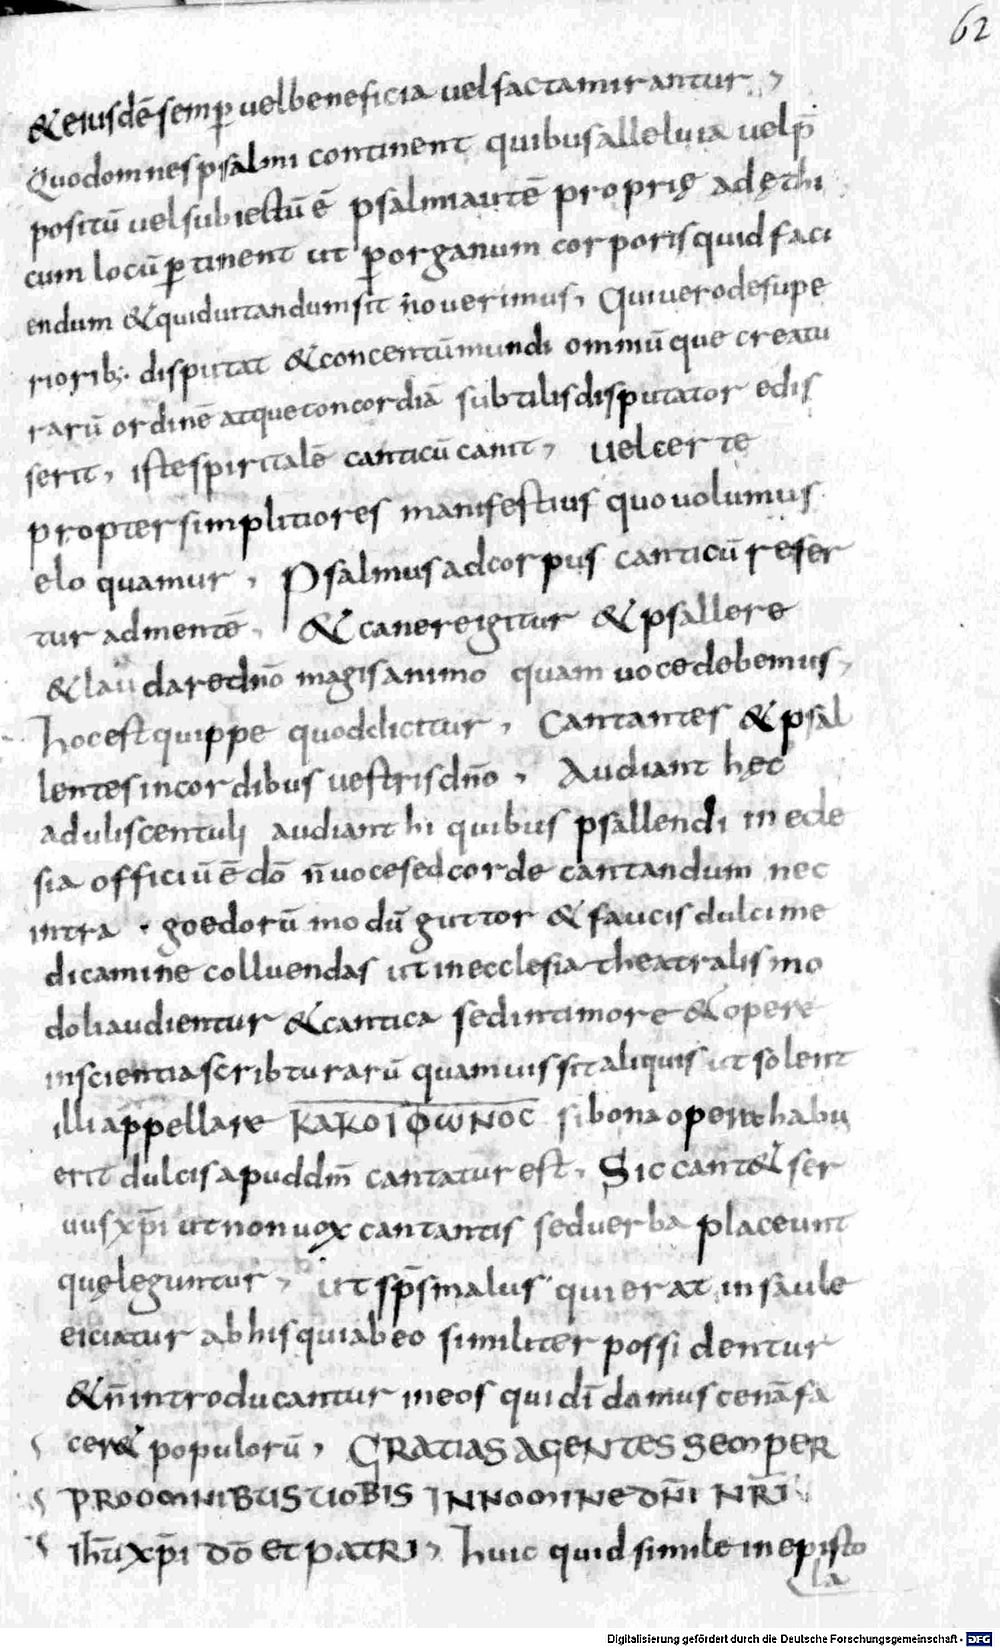 62
&eiusdē semp uelbeneficia uelfactamirantur,
Quodomnespsalmi continent quibusalleluia uelp̄
positū uelsubiectū ē psalmiautē proprię adęthi
cum locū ꝑtinent ut ꝑorganum corporisquidfaci
endum &quiduitandumsit nouerimus, Quiuerodesupe
riorib; disputat &concentūmundi omniūque creatu
rarū ordinē atqueconcordiā subtilisdisputator edis
serit, iste spiritalē canticū canit, uelcerte
proptersimplitiores manifestius quouolumus
eloquamur, Psalmusadcorpus canticū refer
tur admentē, &canereigitur &psallere
&laudaredn̄o magisanimo quam uocedebemus,
hocestquippe quoddicitur, Cantantes &psal
lentesincordibus uestrisdn̄o, Audiant hęc
aduliscentuli audiant hi quibus psallendi in ecle
sia officiū ē dō n̄uocesedcorde cantandum nec
intra · goedorū modū guttor &faucis dulcime
dicamine colluendas ut inecclesia theatralismo
doliaudientur &cantica sedintimore &opere
inscientiascribturarū quamuissitaliquis ut solent
illi appellare ΚΑΚΟΙΦωΝΟC sibona opera habu
erit dulcisapuddm̄ cantatur est, Siccant& ser
uusxp̄i utnonuox cantantis seduerba placeunt
quęleguntur, ut sp̄smalus quierat insaule
eiciatur abhisquiabeo similiter possidentur
&n̄introducantur ineos quidī domuscenāfa
cer& populorū, GRATIAS AGENTES SEMPER
PROOMNIBUS UOBIS INNOMINE DN̄I NR̄I
ih̄uxp̄i DŌ ET PATRI, huic quid simile inepisto
la
Digitalisierung gefördert durch die Deutsche Forschungsgemeinschaft - DFG